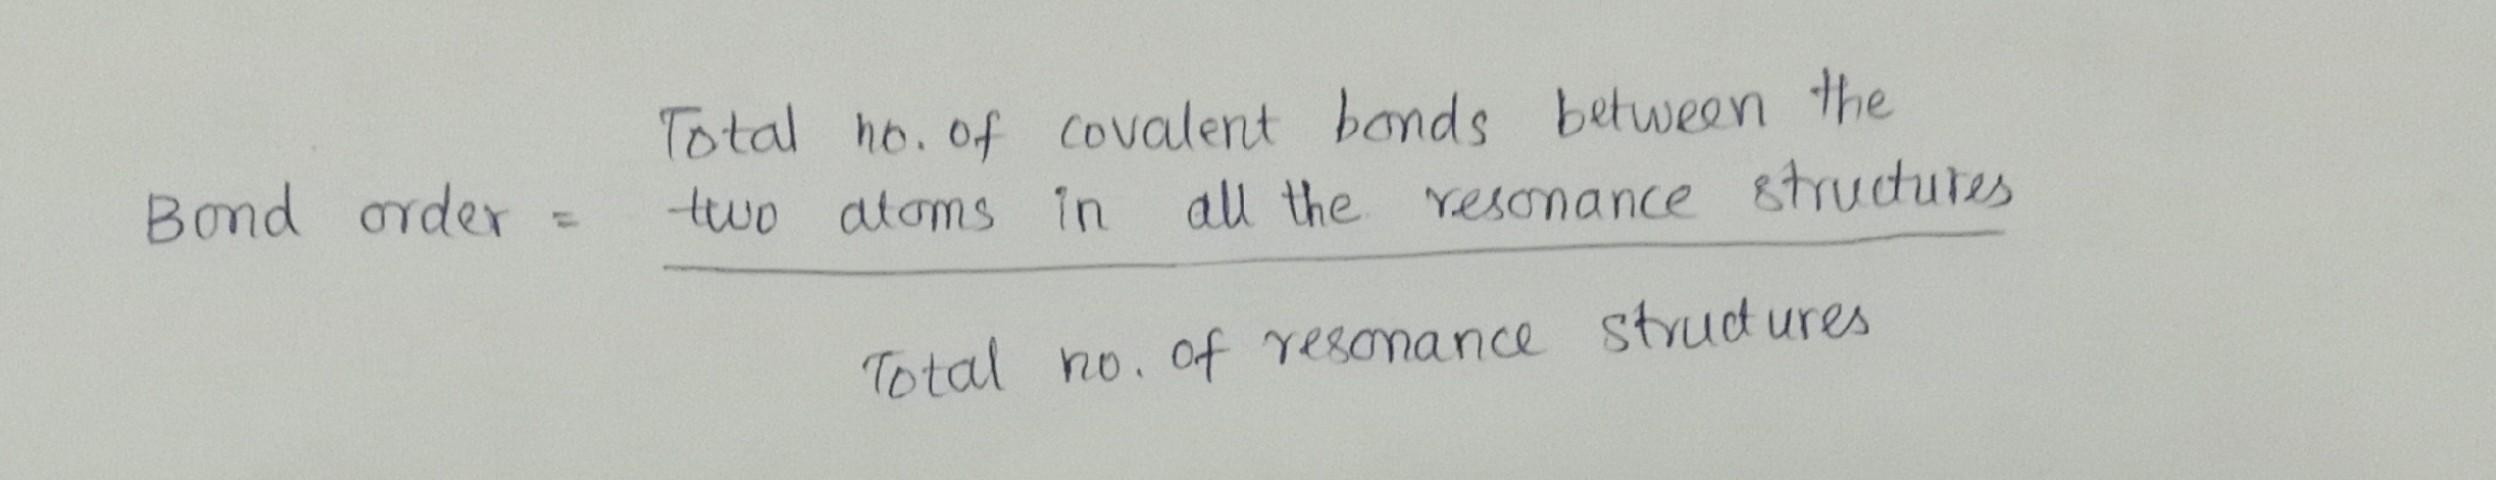 Total no. of covalent bonds between the
Bond order = two atoms in all the resonance structures
Total no. of resonance structures